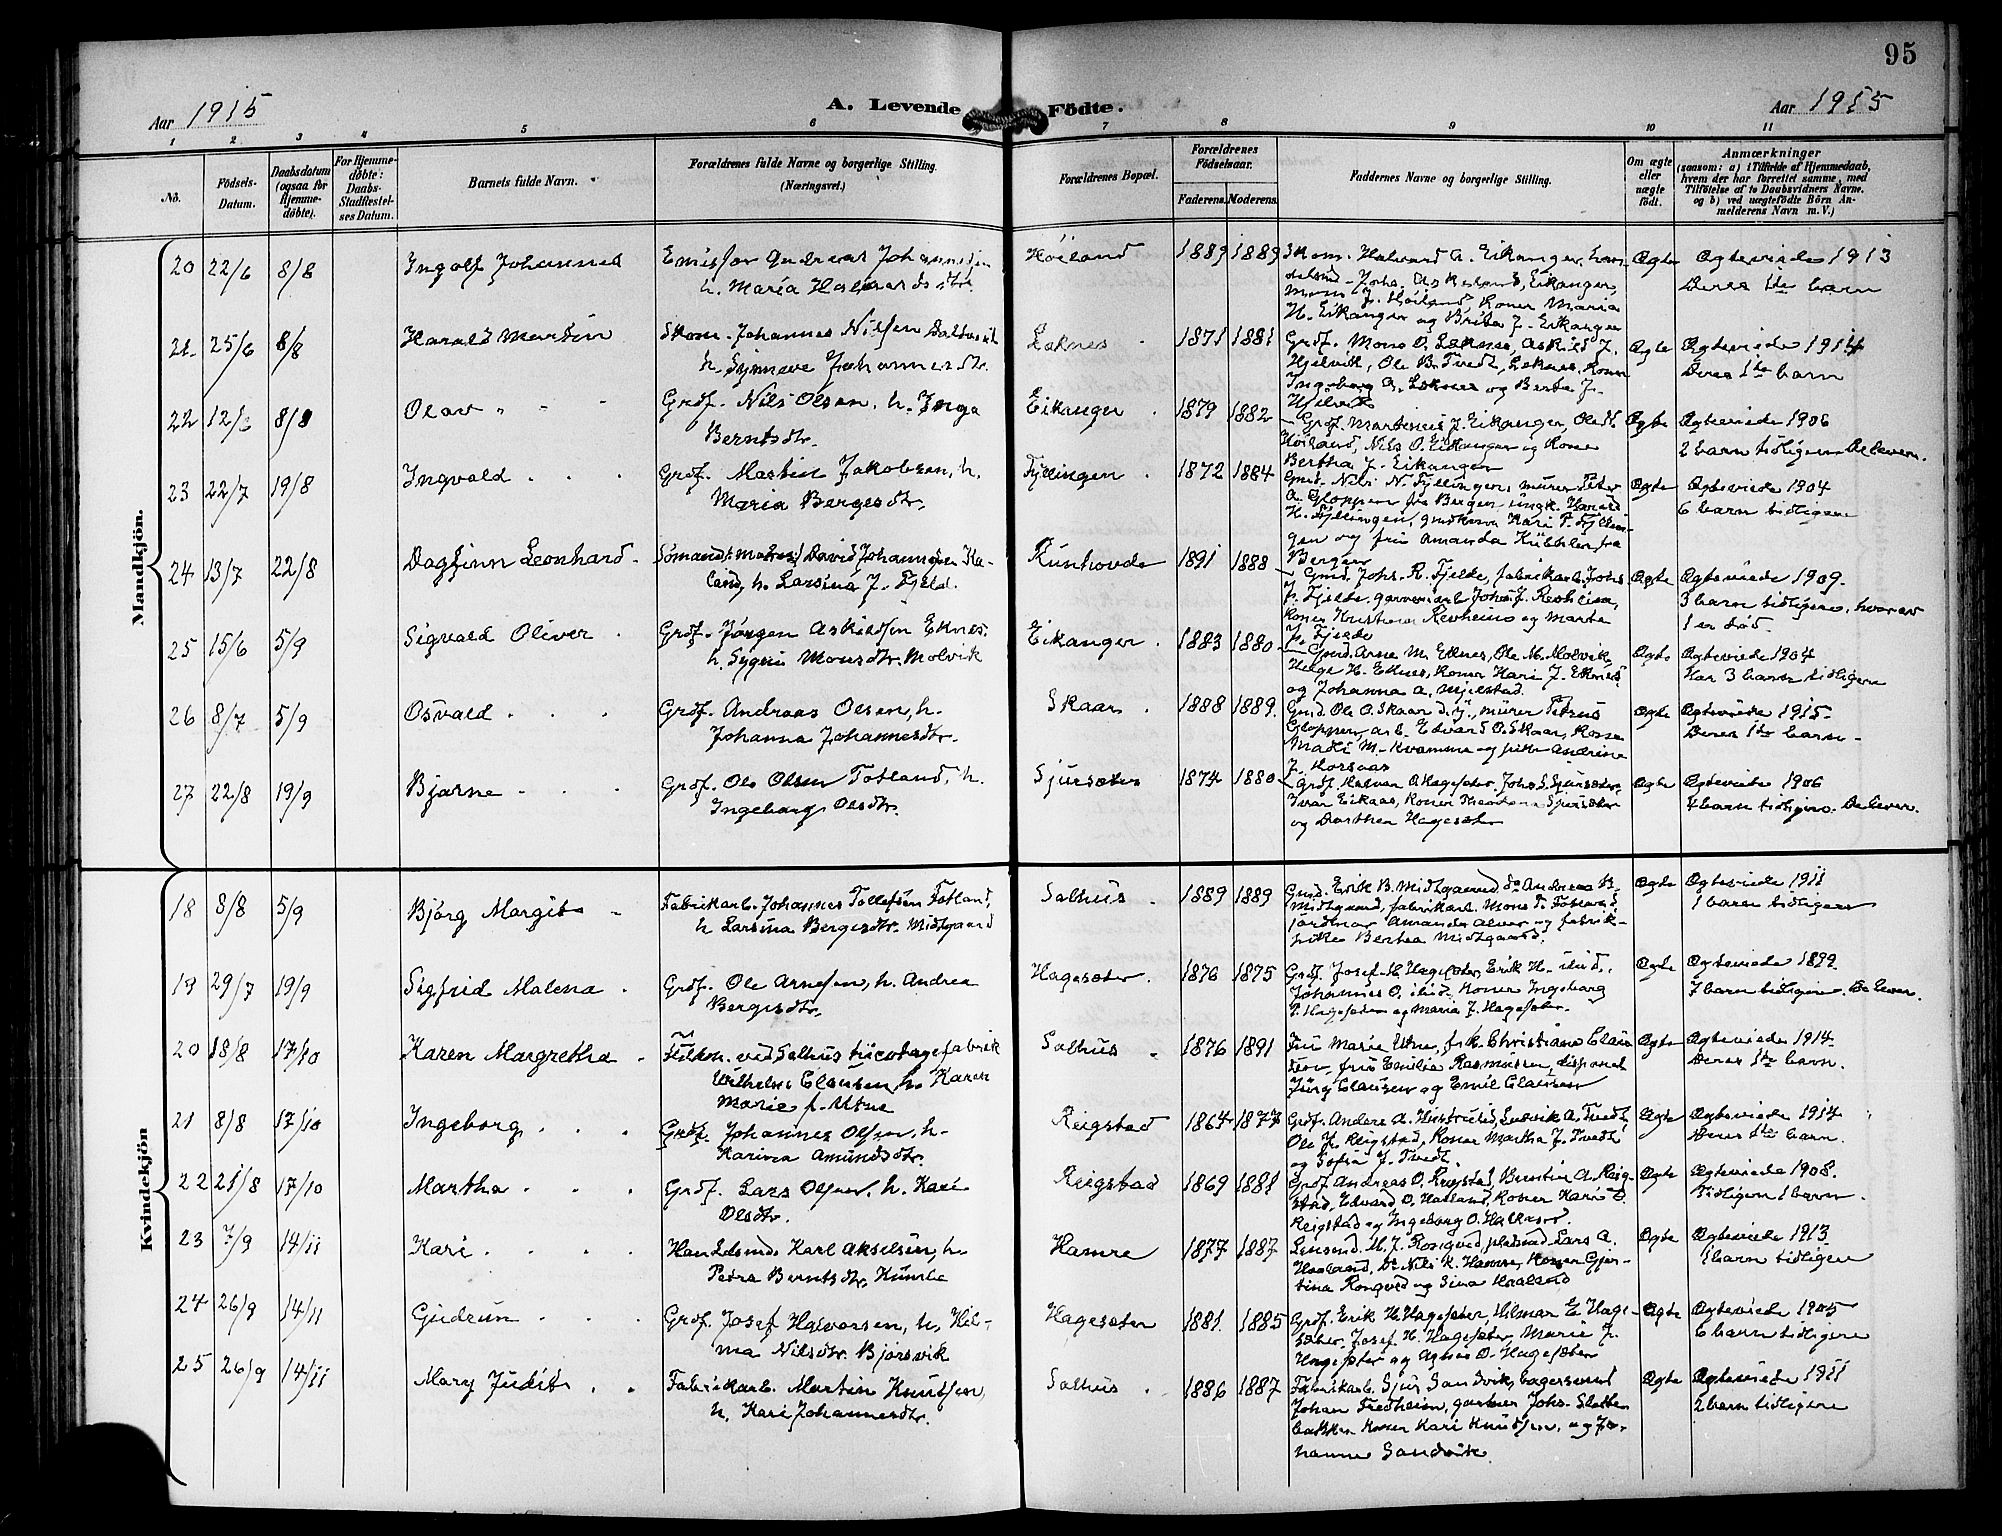 95
Aar 1915
A. Levende Födte.
Aar 1915
1 2 3 4 5 6 7 8 9 10 11
No.
Födsels-Datum.
Daabsdatum (ogsaa for Hjemme-döbte).
For Hjemme-döbte: Daabs-Stadfæstel-ses Datum.
Barnets fulde Navn.
Forældrenes fulde Navne og borgerlige Stilling.
(Næringsvei.)
Forældrenes Bopæl.
Forældrenes Födselsaar.
Faderens. Moderens.
Faddernes Navne og borgerlige Stilling.
Om ægte eller uægte födt.
Anmærkninger
(saasom: a) i Tilfælde af Hjemmedaab, hvem der har forrettet samme, med Tilföielse af to Daabsvidners Navne. og b) ved uægtefödte Börn An-melderens Navn m. V.)
Mandkjön.
20 22/6 8/8 Ingolf Johannes
Emissær Andreas Johannesen
h. Maria Halvardsdtr.
Höiland 1889 1889
Skom. Halvard A. Eikanger,
Johs. Askeland, Eikanger,
J. Höiland, Koner Maria
H. Eikanger og Brita J. Eikanger
Ægte
Ægteviede 1913
Deres 1ste barn
21 25/6 8/8 Harald Martin
Skom. Johannes Nilsen
h. Synneve Johannesdtr.
Leknes 1871 1881
Grdf. Mons O. Leknes, Askild J.
Hjelvik, Ole B. Tvedt, Leknes, Koner
Ingeborg A. Leknes og Berta J.
Hjelvik
Ægte
Ægteviede 1914
Deres 1ste barn
22 12/6 8/8 Olav
Grdf. Nils Olsen, h. Inga
Berntsdtr.
Eikanger 1879 1882
Grdf. Martinus J. Eikanger, Ole
Höiland, Nils O. Eikanger og Kone
Bertha J. Eikanger
Ægte
Ægteviede 1906
2 barn tidligere. De lever.
23 22/7 19/8 Ingvald
Grdf. Martin Jakobsen, h.
Maria Bergesdtr.
Fyllingen 1872 1884
Gmd. Nils N. Fyllingen, murer Peter
A. Gloppen fra Bergen, ungk. Harald
H. Fyllingen, gmdkone Kari P. Fyllin-
gen og frü Amanda Kübhler fra
Bergen
Ægte
Ægteviede 1904
6 barn tidligere
24 13/7 22/8 Dagfinn Leonhard
Sömand David Johannesen Ka-
land, h. Larsina J. Fjeld.
Runhovde 1891 1888
Gmd. Johs. R. Fjelde, fabrikarb. Johs.
J. Fjelde, garveriarb. Johs. J. Revheim,
Koner Kristiane Revheim og Marta
J. Fjelde
Ægte
Ægteviede 1909
3 barn tidligere, hvorav
1 er död.
25 15/6 5/9 Sigvald Oliver
Grdf. Jörgen Askildsen Eknes.
h. Sygni Monsdtr. Molvik
Eikanger 1883 1880
Gmd. Arne M. Eknes, Ole M. Molvik,
Helge H. Eknes, Koner Kari J. Eknes
og Johanna A. Mjelstad.
Ægte
Ægteviede 1904
Har 3 barn tidligere
26 8/7 5/9 Osvald
Grdf. Andreas Olsen, h.
Johanna Johannesdtr.
Skaar 1888 1889
Gmd. Ole O. Skaar d.y., murer Petrus
Gloppen, arb. Edvard O. Skaar, Kone
Madli M. Kvamme og pike Andrine
J.
Ægte
Ægteviede 1915
Deres 1ste barn
27 22/8 19/9 Bjarne
Grdf. Ole Olsen Totland, h.
Ingeborg Olsdtr.
Sjursæter 1874 1880
Grdf. Halvor A. Hagesæter, Johs. S. Sjursæter,
Ivar Eikaas, Koner Theodora Sjursæter
og Dorthea Hagesæter
Ægte
Ægteviede 1906
4 barn tidligere. De lever.
Kvindekjön
18 8/8 5/9 Bjørg Margit
Fabrikarb. Johannes Tollefsen Totland,
h. Larsina Bergesdtr. Midtgaard
Salhus 1889 1889
Gmd. Erik B. Midtgaard, do Andreas B.
Midtgaard, fabrikarb. Mons T. Totland
jordmor Amanda Alver og fabrik-
pike Bertha Midtgaard.
Ægte
Ægteviede 1911
1 barn tidligere
19 29/7 19/9 Sigfrid Malena
Grdf. Ole Arnesen, h. Andrea
Bergesdtr.
Hagesæter 1876 1875
Grdf. Josef H. Hagesæter, Erik H. ibid.,
Johannes O. ibid, Koner Ingeborg
Hagesæter og Maria J. Hagesæter.
Ægte
Ægteviede 1899
7 barn tidligere. De lever.
20 18/8 17/10 Karen Margretha
Fuldm. ved Salhus tricotagefabrik
Wilhelm Clausen, h. Karen
Marie f. Utne
Salhus 1876 1891
Frü Marie Utne, frk. Christiane Claus
sen, frü Emilie Rasmussen, disponent
Jürg Clausen og Emil Clausen
Ægte
Ægteviede 1914
Deres 1ste barn.
21 8/8 17/10 Ingeborg
Grdf. Johannes Olsen, h.
Karina Amundsdtr.
Reigstad 1864 1877
Grdf. Anders A., Ludvik A. Tvedt,
Ole H. Reigstad, Koner Martha J. Tvedt
og Sofia J. Tvedt.
Ægte
Ægteviede 1914
Deres 1ste barn.
22 21/8 17/10 Martha
Grdf. Lars Olsen, h. Kari
Olsdtr.
Reigstad 1869 1881
Grdf. Andreas O. Reigstad, Berntin A. Reig-
stad, Edvard O. Hatland, Koner Kari O.
Reigstad og Ingeborg O.
Ægte
Ægteviede 1908.
Tidligere 1 barn.
23 7/9 14/11 Kari
Handelsmd. Karl Akselsen, h.
Petra Berntsdtr. Kumle
Hamre 1877 1887
Lensmd. M. J. Rongved, pladsmd. Lars A.
Haaland, Do Nils K. Hamre, Koner Gjer-
tina Rongved og Sina Haaland
Ægte
Ægteviede 1913
1 barn tidligere
24 26/9 14/11 Gudrun
Grdf. Josef Halvorsen, h. Hil-
ma Nilsdtr. Bjørsvik
Hagesæter 1881. 1885
Grdf. Erik H. Hagesæter, Hilmar E. Hage-
sæter, Josef H. Hagesæter, Marie J.
Hagesæter og Agnes O. Hagesæter
Ægte
Ægteviede 1905
6 barn tidligere
25 26/9 14/11 Mary Judit
Fabrikarb. Martin Knudsen,
h. Kari Johannesdtr.
Salhus 1886 1887
Fabrikarb. Sjur Sandvik, bagersvend
Johan Tredheim, gartner Johs. Slette-
bakken Koner Kari Knudsen, og Jo-
hanne Sandvik.
Ægte
Ægteviede 1911
2 barn tidligere